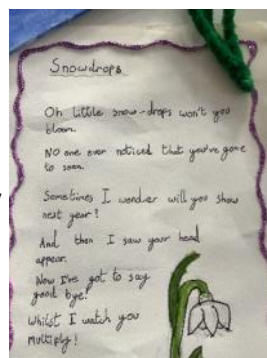 Snowdrops
Oh little snow-drops won't you
bloom.
No one ever noticed that you've gone
to soon.
Sometimes I wonder will you show
next year!
And then I saw your head
appear.
Now I've got to say
good bye!
Whilst I watch you
multiply!